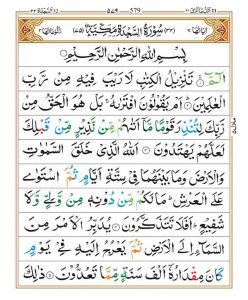 سُوْرَةُ السَّجْدَةِ مَكِّيَّةٌ
بِسْمِ اللهِ الرَّحْمٰنِ الرَّحِيْمِ
الٓمّٓ ۚ تَنْزِيْلُ الْكِتٰبِ لَا رَيْبَ فِيْهِ مِنْ رَّبِّ
الْعٰلَمِيْنَ ؕ اَمْ يَقُوْلُوْنَ افْتَرٰىهُ ۚ بَلْ هُوَ الْحَقُّ مِنْ
رَّبِّكَ لِتُنْذِرَ قَوْمًا مَّاۤ اَتٰىهُمْ مِّنْ نَّذِيْرٍ مِّنْ قَبْلِكَ
لَعَلَّهُمْ يَهْتَدُوْنَ اَللهُ الَّذِيْ خَلَقَ السَّمٰوٰتِ
وَالْاَرْضَ وَمَا بَيْنَهُمَا فِيْ سِتَّةِ اَيَّامٍ ثُمَّ اسْتَوٰى
عَلَى الْعَرْشِ ؕ مَا لَكُمْ مِّنْ دُوْنِهٖ مِنْ وَّلِيٍّ وَّلَا
شَفِيْعٍ ؕ اَفَلَا تَتَذَكَّرُوْنَ يُدَبِّرُ الْاَمْرَ مِنَ
السَّمَآءِ اِلَى الْاَرْضِ ثُمَّ يَعْرُجُ اِلَيْهِ فِيْ يَوْمٍ
كَانَ مِقْدَارُهٗۤ اَلْفَ سَنَةٍ مِّمَّا تَعُدُّوْنَ ذٰلِكَ